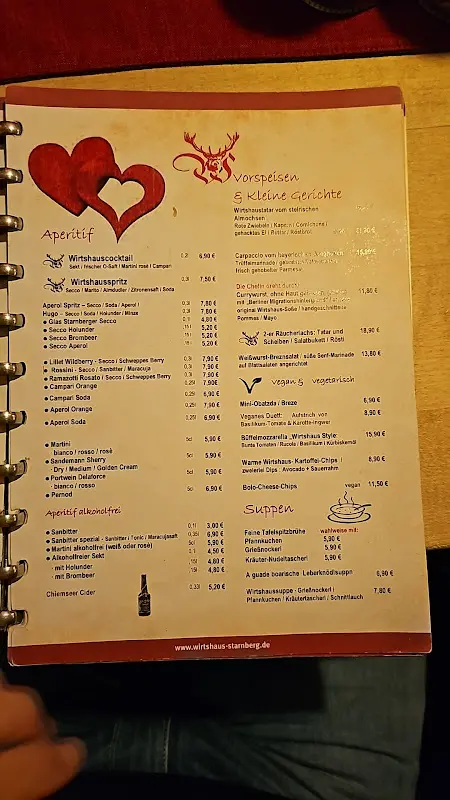 Aperitif
Wirtshauscocktail 0,2 6,90 €
Sekt / frischer O-Saft / Martini rosé / Campari
Wirtshausspritz 0,3l 7,50 €
Secco / Marito / Almdudler / Zitronensaft / Soda
Aperol Spritz – Secco / Soda / Aperol / 0,3l 7,80 €
Hugo – Secco / Soda / Holunder / Minze 0,3l 7,80 €
Glas Starnberger Secco 0,1 4,80 €
Secco Holunder 15l 5,20 €
Secco Brombeer 5,20 €
Secco Aperol 15l 5,20 €
Lillet Wildberry - Secco / Schweppes Berry 0,3l 7,90 €
Rossini - Secco / Sanbitter / Maracuja 0,3l 7,90 €
Ramazotti Rosato / Secco / Schweppes Berry 0,3l 7,90 €
Campari Orange 0,25l 7,90€
Campari Soda 0,25l 6,90 €
Aperol Orange 0,25l 7,90 €
Aperol Soda 0,25l 6,90 €
Martini 5cl 5,90 €
· bianco / rosso / rosé
Sandemann Sherry 5cl 5,90 €
· Dry / Medium / Golden Cream
Portwein Delaforce 5cl 5,90 €
· bianco / rosso
Pernod 5cl 6,90 €
Aperitif alkoholfrei
Sanbitter 0,1l 3,00 €
Sanbitter spezial - Sanbitter / Tonic / Maracujasaft 0,35l 6,90 €
Martini alkoholfrei (weiß oder rosé) 5cl 5,90 €
Alkoholfreier Sekt 0,1 4,50 €
· mit Holunder 15l 4,80 €
· mit Brombeer 15l 4,80 €
Chiemseer Cider 0,33l 5,20 €
Vorspeisen
& Kleine Gerichte
Wirtshaustatar vom steirischen
Almochsen
Rote Zwiebeln / Kapern / Cornichons /
gehacktes Ei / Butter / Röstbrot
Carpaccio vom bayerischen
Trüffelmarinade /
frisch gehobelter Parmesan
Die Chefin dreht durch!
Currywurst, ohne Haut 11,80 €
mit „Berliner Migrationshintergrund“
original Wirtshaus-Soße / handgeschnittene
Pommes / Mayo
2-er Räucherlachs: Tatar und 18,90 €
Scheiben / Salatbukett / Rösti
Weißwurst-Breznsalat / süße Senf-Marinade 13,80 €
auf Blattsalaten angerichtet
vegan & vegetarisch
Mini-Obatzda / Breze 6,90 €
Veganes Duett: Aufstrich von 8,90 €
Basilikum-Tomate & Karotte-Ingwer
Büffelmozzarella „Wirtshaus Style“ 15,90 €
Bunte Tomaten / Rucola / Basilikum / Kürbiskernöl
Warme Wirtshaus- Kartoffel-Chips / 8,90 €
zweierlei Dips : Avocado + Sauerrahm
Bolo-Cheese-Chips vegan 11,50 €
Suppen
Feine Tafelspitzbrühe wahlweise mit:
Pfannkuchen 5,90 €
Grießnockerl 5,90 €
Kräuter-Nudeltascherl 5,90 €
A guade boarische Leberknödlsuppn 6,90 €
Wirtshaussuppe - Grießnockerl / 7,80 €
Pfannkuchen / Kräutertascherl / Schnittlauch
www.wirtshaus-starnberg.de